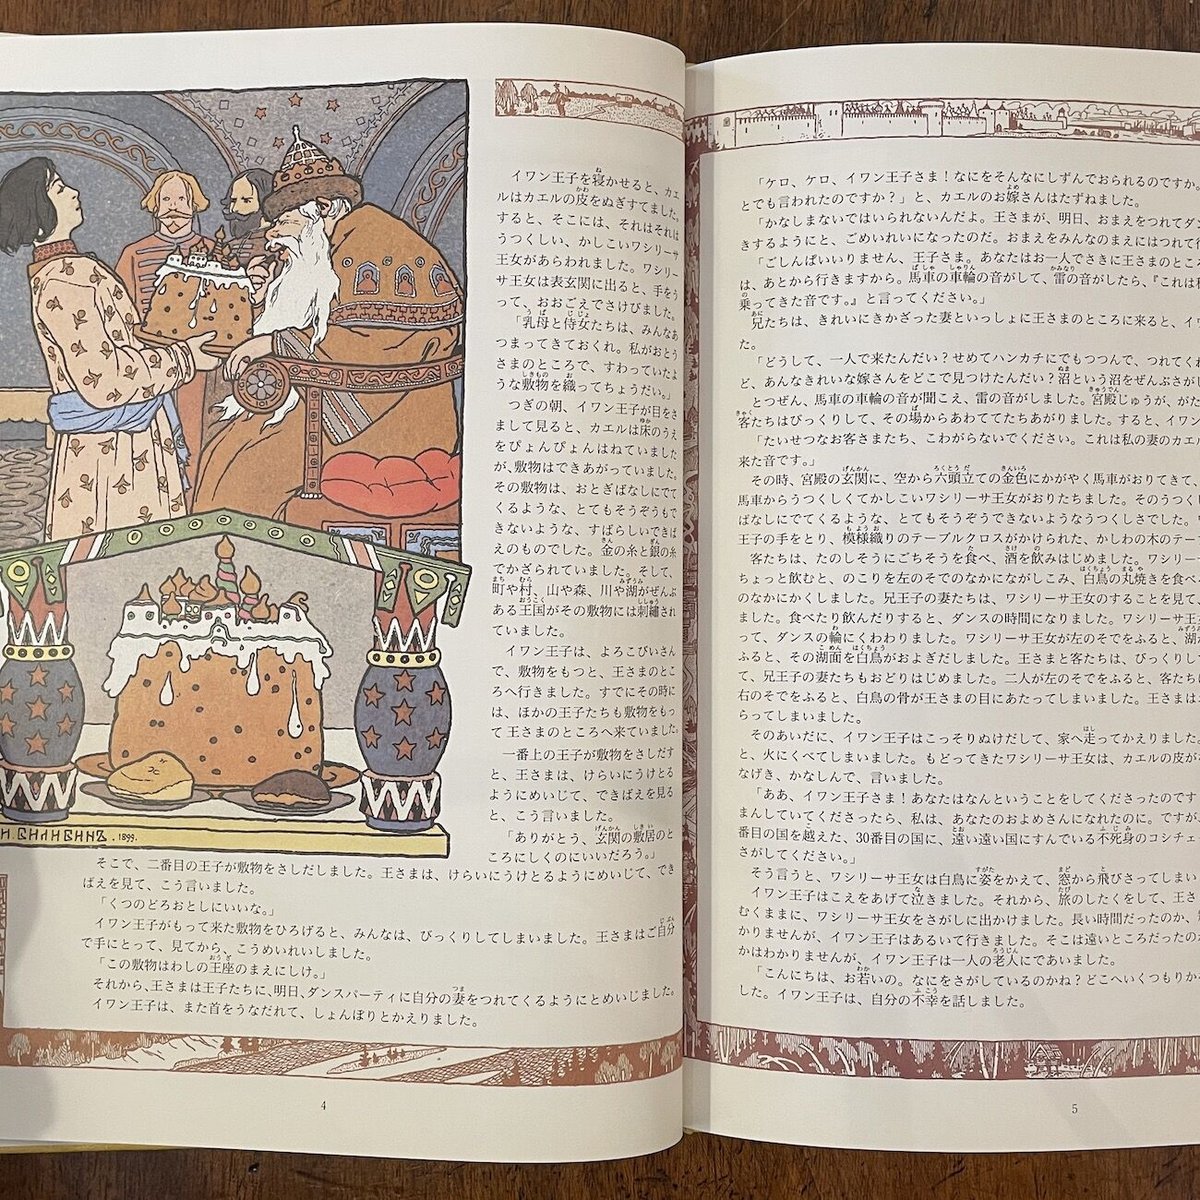 イワン王子を寝かせると、カエ
ルはカエルの皮をぬぎすてました。
すると、そこには、それはそれは
うつくしい、かしこいワシリーサ
王女があらわれました。ワシリー
サ王女は表玄関に出ると、手をう
って、おおごえでさけびました。
「乳母と侍女たちは、みんなあ
つまってきておくれ。私がおとう
さまのところで、すわっていたよ
うな敷物を織ってちょうだい。」
つぎの朝、イワン王子が目をさ
まして見ると、カエルは床のうえ
をぴょんぴょんはねていました
が、敷物はできあがっていました。
その敷物は、おとぎばなしにでて
くるような、とてもそうぞうもで
きないような、すばらしいできば
えのものでした。金の糸と銀の糸
でかざられていました。そして、
町や村、山や森、川や湖がぜんぶ
ある王国がその敷物には刺繡され
ていました。
イワン王子は、よろこびいさん
で、敷物をもつと、王さまのとこ
ろへ行きました。すでにその時に
は、ほかの王子たちも敷物をもっ
て王さまのところへ来ていました。
一番上の王子が敷物をさしだす
と、王さまは、けらいにうけとる
ようにめいじて、できばえを見る
と、こう言いました。
「ありがとう、玄関の敷居のと
ころにしくのにいいだろう。」
И. БИЛИБИНЪ. 1899.
そこで、二番目の王子が敷物をさしだしました。王さまは、けらいにうけとるようにめいじて、でき
ばえを見て、こう言いました。
「くつのどろおとしにいいな。」
イワン王子がもって来た敷物をひろげると、みんなは、びっくりしてしまいました。王さまはご自分
で手にとって、見てから、こうめいれいしました。
「この敷物はわしの王座のまえにしけ。」
それから、王さまは王子たちに、明日、ダンスパーティに自分の妻をつれてくるようにとめいじました。
イワン王子は、また首をうなだれて、しょんぼりとかえりました。
4
「ケロ、ケロ、イワン王子さま！なにをそんなにしずんでおられるのですか
とでも言われたのですか？」と、カエルのお嫁さんはたずねました。
「かなしまないではいられないんだよ。王さまが、明日、おまえをつれてダ
きするようにと、ごめいれいになったのだ。おまえをみんなのまえにはつれて行
「ごしんぱいいりません、王子さま。あなたはお一人でさきに王さまのところ
は、あとから行きますから。馬車の車輪の音がして、雷の音がしたら、『これは私
乗ってきた音です。』と言ってください。」
兄たちは、きれいにきかざった妻といっしょに王さまのところに来ると、イワ
た。
「どうして、一人で来たんだい？せめてハンカチにでもつつんで、つれてくれ
ど、あんなきれいな嫁さんをどこで見つけたんだい？沼という沼をぜんぶさが
とつぜん、馬車の車輪の音が聞こえ、雷の音がしました。宮殿じゅうが、がた
客たちはびっくりして、その場からあわててたちあがりました。すると、イワン
「たいせつなお客さまたち、こわがらないでください。これは私の妻のカエル
来た音です。」
その時、宮殿の玄関に、空から六頭立ての金色にかがやく馬車がおりてきて、
馬車からうつくしくてかしこいワシリーサ王女がおりたちました。そのうつく
ばなしにでてくるような、とてもそうぞうできないようなうつくしさでした。
王子の手をとり、模様織りのテーブルクロスがかけられた、かしわの木のテー
客たちは、たのしそうにごちそうを食べ、酒を飲みはじめました。ワシリー
ちょっと飲むと、のこりを左のそでのなかにながしこみ、白鳥の丸焼きを食べ
のなかにかくしました。兄王子の妻たちは、ワシリーサ王女のすることを見て、
ました。食べたり飲んだりすると、ダンスの時間になりました。ワシリーサ王女
って、ダンスの輪にくわわりました。ワシリーサ王女が左のそでをふると、湖
ふると、その湖面を白鳥がおよぎだしました。王さまと客たちは、びっくりして
て、兄王子の妻たちもおどりはじめました。二人が左のそでをふると、客たちに
右のそでをふると、白鳥の骨が王さまの目にあたってしまいました。王さまは
らってしまいました。
そのあいだに、イワン王子はこっそりぬけだして、家へ走ってかえりました。
と、火にくべてしまいました。もどってきたワシリーサ王女は、カエルの皮がな
なげき、かなしんで、言いました。
「ああ、イワン王子さま！あなたはなんということをしてくださったのです
まんしていてくださったら、私は、あなたのおよめさんになれたのに。ですが
番目の国を越えた、30番目の国に、遠い遠い国にすんでいる不死身のコシチェ
さがしてください。」
そう言うと、ワシリーサ王女は白鳥に姿をかえて、窓から飛びさってしまい
イワン王子はこえをあげて泣きました。それから、旅のしたくをして、王さ
むくままに、ワシリーサ王女をさがしに出かけました。長い時間だったのか、
かりませんが、イワン王子はあるいて行きました。そこは遠いところだったのか
かはわかりませんが、イワン王子は一人の老人にであいました。
「こんにちは、お若いの。なにをさがしているのかね？どこへいくつもりか
した。イワン王子は、自分の不幸を話しました。
5